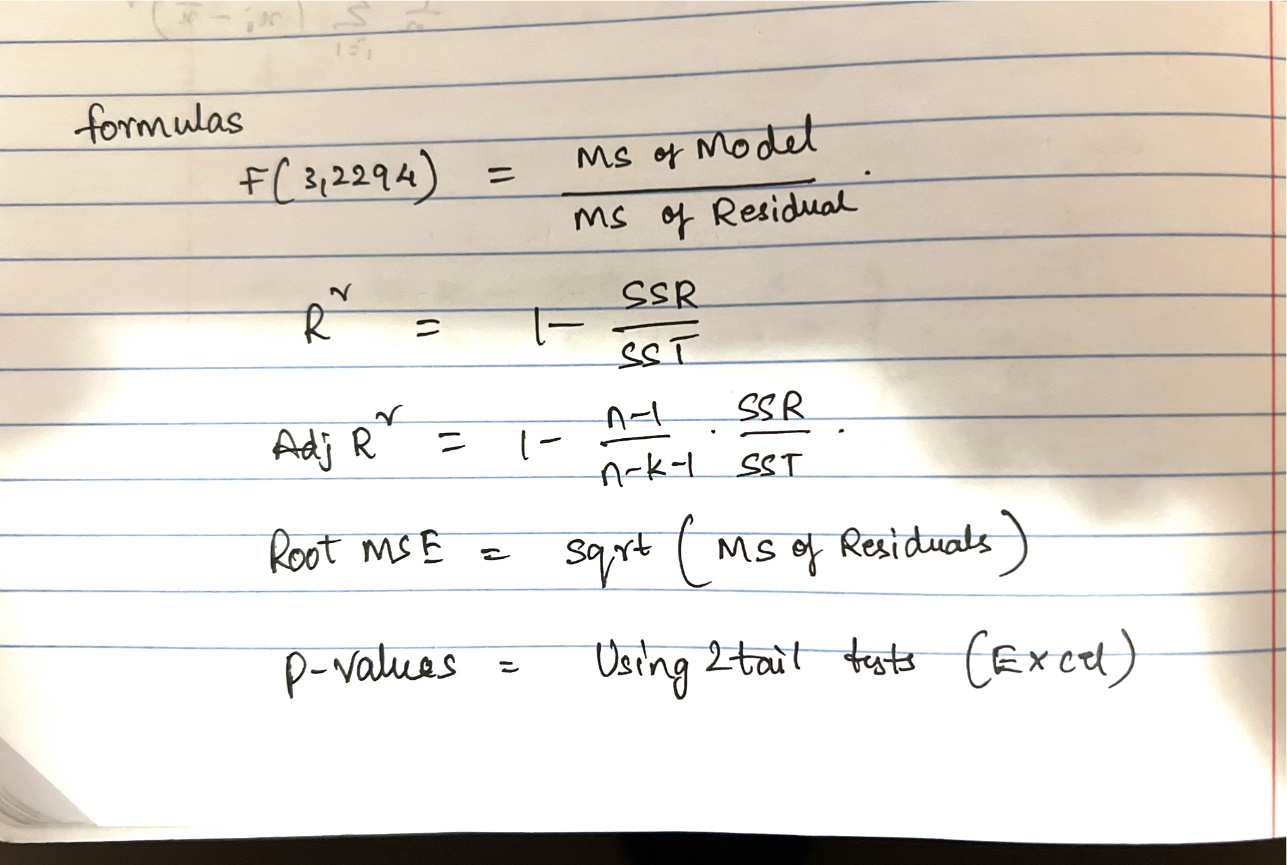 formulas
F(3,2294) = MS of Model / MS of Residual .
R² = 1 - SSR / SST
Adj R² = 1 - n-1 / n-k-1 . SSR / SST .
Root MSE = sqrt ( MS of Residuals )
p-values = Using 2 tail tests (Excel)